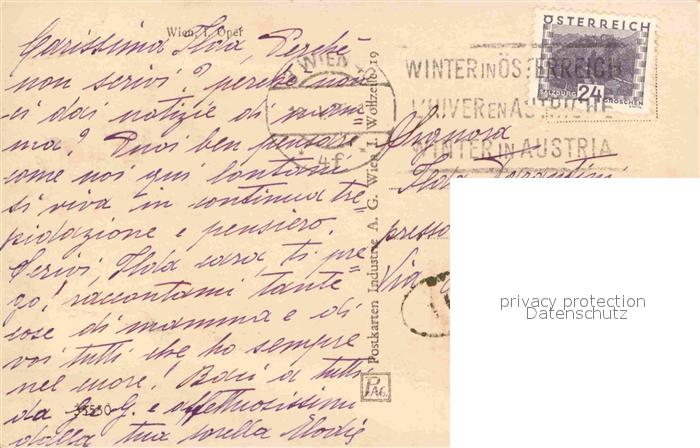 Wien, I. Oper
Carissima Ilda, Perché
non scrivi? perché non
ci dai notizie di mam
ma? Puoi ben pensare
come noi qui lontani
si viva in continua tre
pidazione e pensiero.
Scrivi, Ilda cara, ti pre
go! raccontami tante
cose di mamma e di
voi tutti che ho sempre
nel cuore! Baci a tutti
da G. G. e affettuosissimi
dalla tua sorella Elodie
35550
Postkarten Industrie A. G. Wien I. Wollzeile 19
PAG.
WIEN
ÖSTERREICH
24
GROSCHEN
WINTER IN ÖSTERREICH
L'HIVER EN AUTRICHE
WINTER IN AUSTRIA
Signora
Ilda
presso
Via
privacy protection
Datenschutz